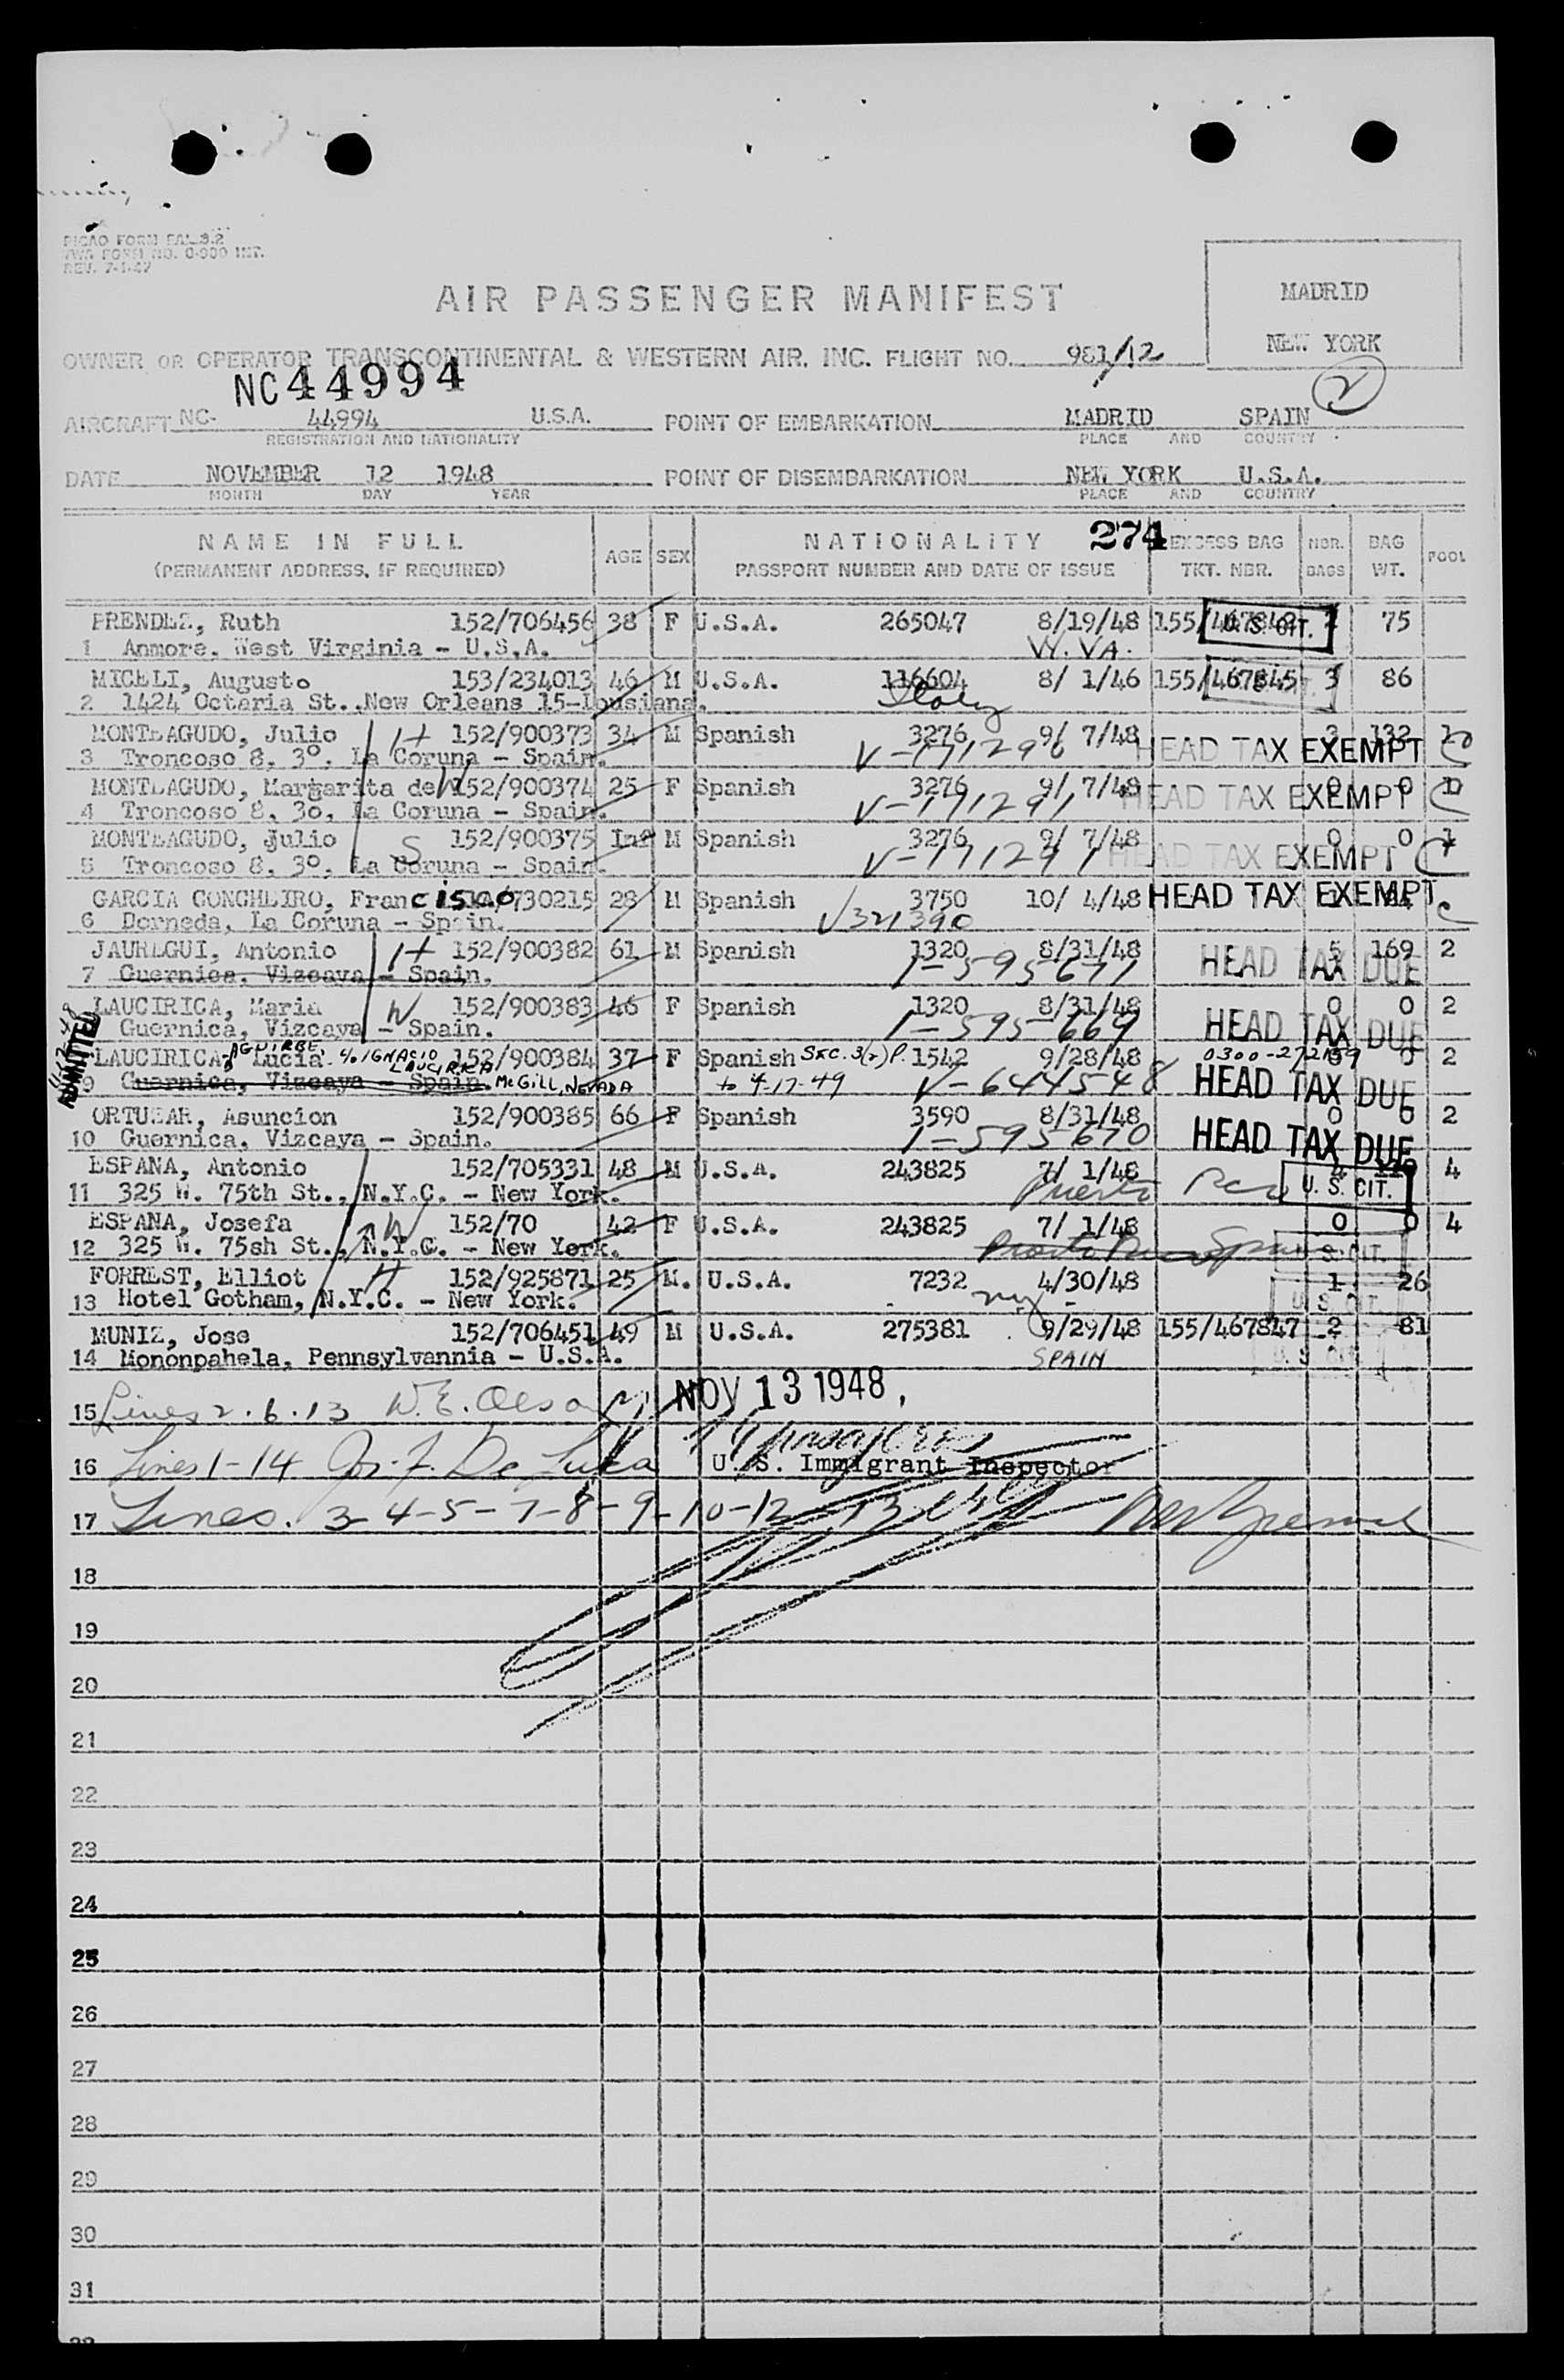 PICAO FORM FAL 3.2
TWA FORM NO. O-900 INT.
REV. 7-1-47
AIR PASSENGER MANIFEST
MADRID
NEW YORK
2
OWNER OR OPERATOR TRANSCONTINENTAL & WESTERN AIR, INC. FLIGHT NO. 981/12
NC44994
AIRCRAFT NC- 44994 U.S.A. POINT OF EMBARKATION MADRID SPAIN
REGISTRATION AND NATIONALITY PLACE AND COUNTRY
DATE NOVEMBER 12 1948 POINT OF DISEMBARKATION NEW YORK U.S.A.
MONTH DAY YEAR PLACE AND COUNTRY
NAME IN FULL AGE SEX NATIONALITY 274 EXCESS BAG NBR. BAG POOL
(PERMANENT ADDRESS, IF REQUIRED) PASSPORT NUMBER AND DATE OF ISSUE TKT. NBR. BAGS WT.
PRENDEZ, Ruth 152/706456 38 F U.S.A. 265047 8/19/48 155/467842 U.S. CIT. 75
1 Anmore, West Virginia - U.S.A. W. VA.
MICELI, Augusto 153/234013 46 M U.S.A. 116604 8/ 1/46 155/467845 3 86
2 1424 Octaria St., New Orleans 15-Lousiana. Italy
MONTEAGUDO, Julio H 152/900373 34 M Spanish 3276 9/ 7/48 3 132
3 Troncoso 8, 3º, La Coruna - Spain. V-171296 HEAD TAX EXEMPT
MONTEAGUDO, Margarita de W 152/900374 25 F Spanish 3276 9/ 7/48 0 0 1
4 Troncoso 8, 3o, La Coruna - Spain. V-171291 HEAD TAX EXEMPT
MONTEAGUDO, Julio S 152/900375 Inf M Spanish 3276 9/ 7/48 0 0 1
5 Troncoso 8, 3º, La Coruna - Spain. V-171291 HEAD TAX EXEMPT
GARCIA CONCHEIRO, Francisco 730215 28 M Spanish 3750 10/ 4/48 HEAD TAX EXEMPT
6 Dorneda, La Coruna - Spain. V321390
JAUREGUI, Antonio H 152/900382 61 M Spanish 1320 8/31/48 5 169 2
7 Guernica, Vizcaya - Spain. I-595671 HEAD TAX DUE
LAUCIRICA, Maria W 152/900383 46 F Spanish 1320 8/31/48 0 0 2
Guernica, Vizcaya - Spain. I-595669 HEAD TAX DUE
ADMITTED
AGUIRBE
LAUCIRICA, Lucia c/o IGNACIO LAUCIRICA 152/900384 37 F Spanish SEC. 3(2) P. 1542 9/28/48 0300-272159 0 2
9 Guernica, Vizcaya - Spain. McGill, NEVADA to 4-17-49 V-644548 HEAD TAX DUE
ORTUZAR, Asuncion 152/900385 66 F Spanish 3590 8/31/48 0 0 2
10 Guernica, Vizcaya - Spain. I-595670 HEAD TAX DUE
ESPANA, Antonio 152/705331 48 M U.S.A. 243825 7/ 1/48 4
11 325 W. 75th St., N.Y.C. - New York. Puerto Rico U.S. CIT.
ESPANA, Josefa W 152/70 42 F U.S.A. 243825 7/ 1/48 0 0 4
12 325 W. 75sh St., N.Y.C. - New York. Puerto Rico Spain U.S. CIT.
FORREST, Elliot H 152/925871 25 M. U.S.A. 7232 4/30/48 1 26
13 Hotel Gotham, N.Y.C. - New York. NY U.S. CIT.
MUNIZ, Jose 152/706451 49 M U.S.A. 275381 9/29/48 155/467847 2 81
14 Mononpahela, Pennsylvannia - U.S.A. SPAIN U.S. CIT
15 Lines 2.6.13 W.E. Olson NOV 13 1948,
16 Lines 1-14 Jos. F. De Luca U. S. Immigrant Inspector
17 Lines. 3-4-5-7-8-9-10-12-13
18
19
20
21
22
23
24
25
26
27
28
29
30
31